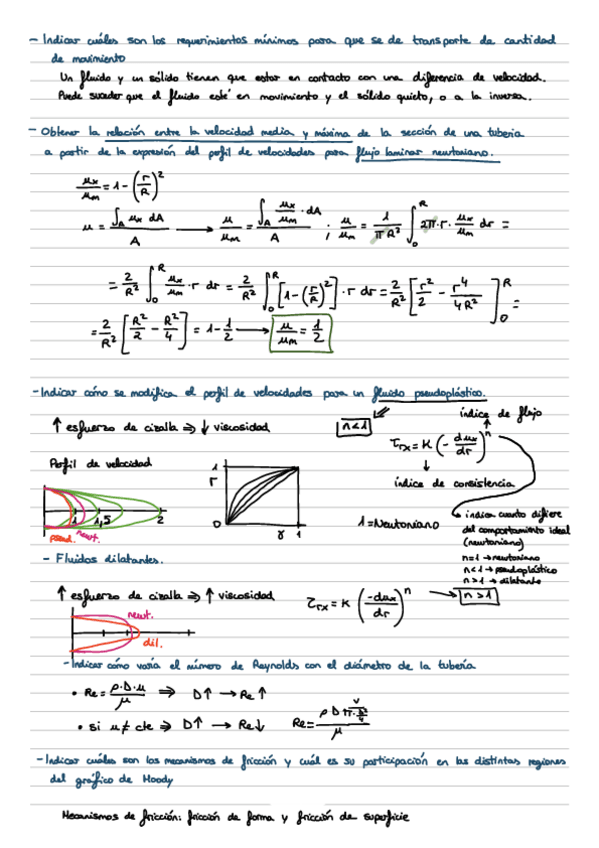 - Indicar cuáles son los requerimientos mínimos para que se de transporte de cantidad
de movimiento
Un fluido y un sólido tienen que estar en contacto con una diferencia de velocidad.
Puede suceder que el fluido esté en movimiento y el sólido quieto, o a la inversa.
- Obtener la relación entre la velocidad media y máxima de la sección de una tubería
a partir de la expresión del perfil de velocidades para flujo laminar newtoniano.
μx/μm = 1 - (r/R)²
μ = ∫A μx dA / A → μ/μm = ∫A μx/μm · dA / A ; μ/μm = 1/πR² ∫₀ᴿ 2π·r · μx/μm dr =
= 2/R² ∫₀ᴿ μx/μm · r dr = 2/R² ∫₀ᴿ [1 - (r/R)²] · r dr = 2/R² [r²/2 - r⁴/4R²]₀ᴿ =
= 2/R² [R²/2 - R²/4] = 1 - 1/2 → μ/μm = 1/2
- Indicar cómo se modifica el perfil de velocidades para un fluido pseudoplástico.
↑ esfuerzo de cizalla ⇒ ↓ viscosidad
n<1
índice de flujo
τrx = K (- dux/dr)ⁿ
índice de consistencia
Perfil de velocidad
1
r
0
γ 1
1 = Newtoniano
indica cuanto difiere
del comportamiento ideal
(newtoniano)
n=1 → newtoniano
n<1 → pseudoplástico
n>1 → dilatante
1 1,5 2
pseud. newt.
- Fluidos dilatantes.
↑ esfuerzo de cizalla ⇒ ↑ viscosidad
τrx = K (-dux/dr)ⁿ → n>1
newt.
dil.
- Indicar cómo varía el número de Reynolds con el diámetro de la tubería
• Re = ρ·D·u/μ ⇒ D↑ → Re↑
• si u ≠ cte ⇒ D↑ → Re↓ Re =
- Indicar cuáles son los mecanismos de fricción y cuál es su participación en las distintas regiones
del gráfico de Moody
Mecanismos de fricción: fricción de forma y fricción de superficie